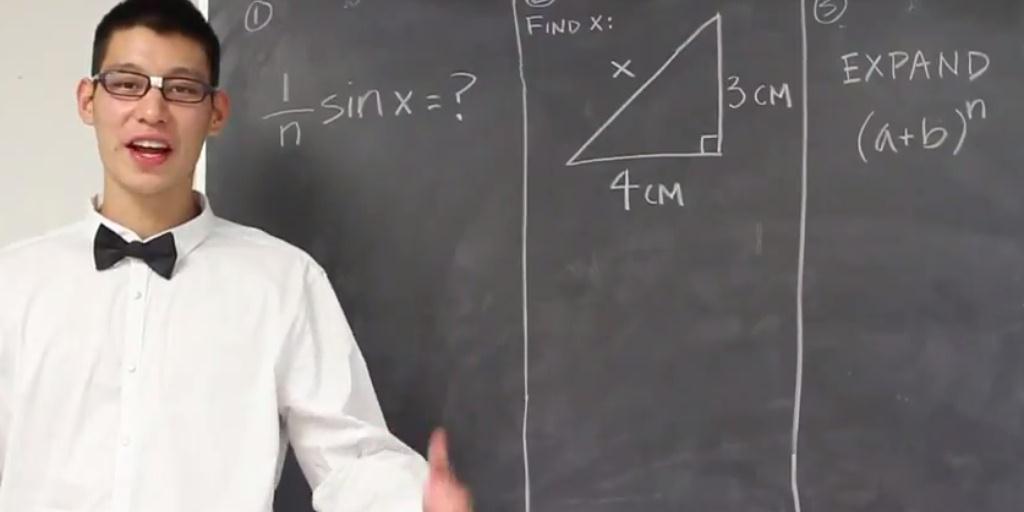 ①
1/n sin x = ?
FIND X:
x
3 CM
4 CM
EXPAND
(a+b)^n